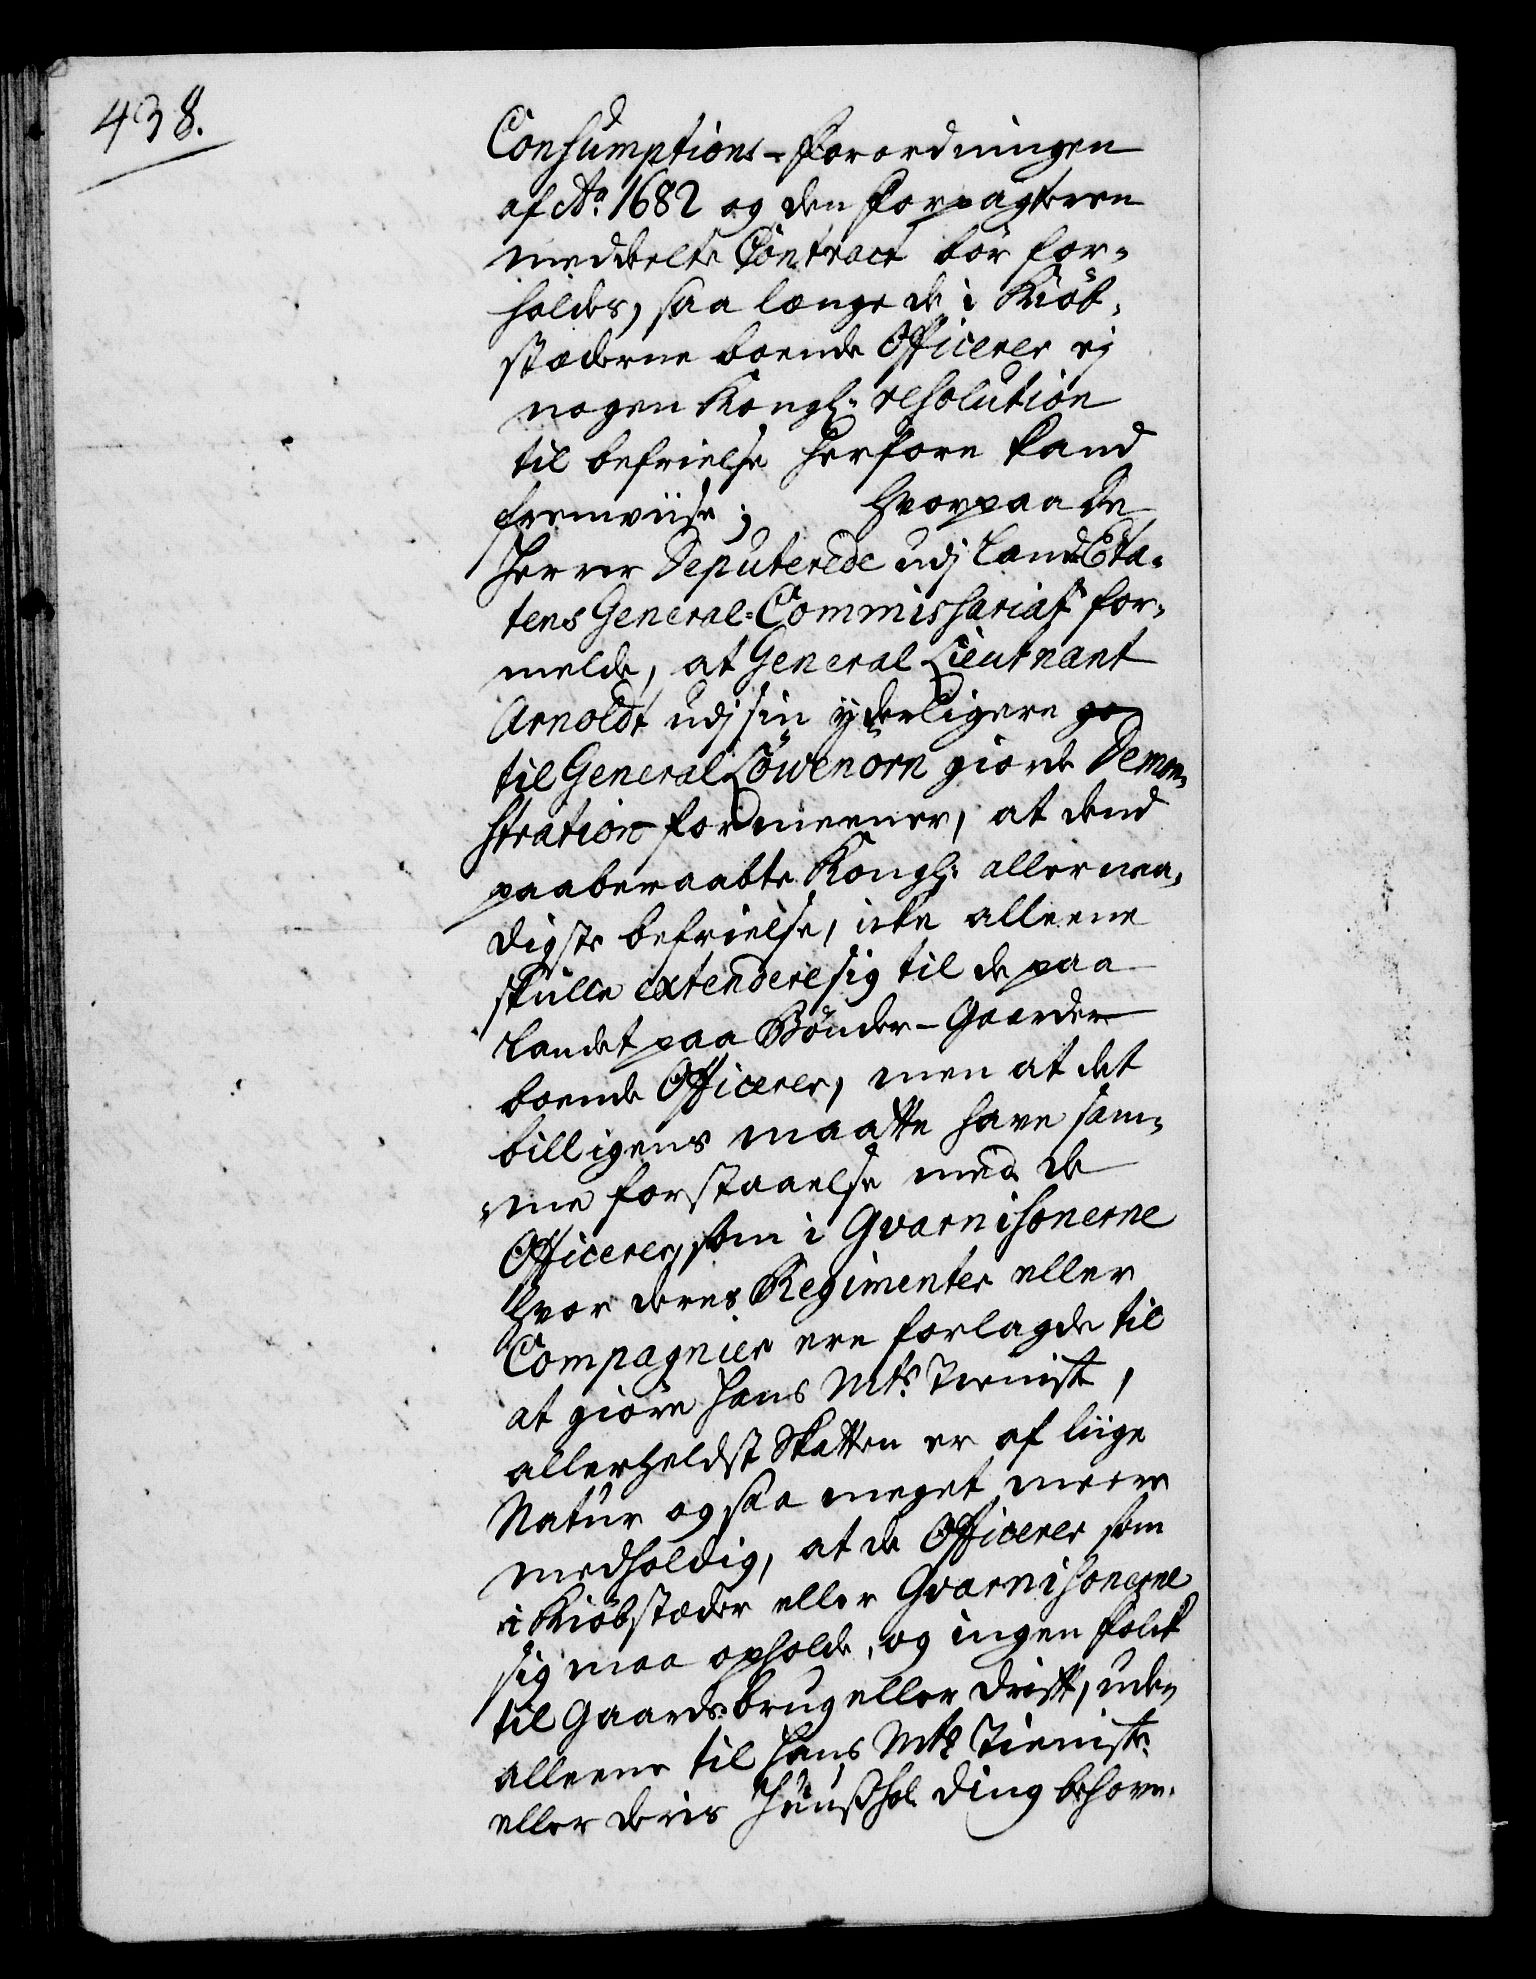 438.
Consumptions-Forordningen
af Ao. 1682 og den Forpagteren
meddeelte Contract bör for-
holdes, saa længe de i Kiöb-
stæderne boende Officerer ej
nogen Kongl: resolution
til befrielse herfore kand
fremviise; hvorpaa de
Herrer Deputerede udj Land Eta-
tens General-Commissariat for-
melde, at General Lieutnant
Arnoldt udj sin ÿderligere
til General Löwenörn giorde Demon-
stration formeener, at dend
paaberaabte Kongl: allernaa-
digste befrielse, icke alleene
skulle extendere sig til de paa
Landet paa Bönder-Gaarder
boende Officerer, men at det
billigens maatte have sam-
me forstaaelse med de
Officerer, som i Gvarnisonerne
hvor deres Regimenter eller
Compagnier ere forlagde til
at giöre Hans Mts. Tieniste,
allerheldst Skatten er af liige
Natur og saa meget meere
medholdig, at de Officerer som
i Kiöbstæder eller Gvarnisonerne
sig maa opholde, og ingen Folck
til Gaards brug eller Drifft, uden
alleene til Hans Mts Tieniste
eller deris Huusholding behöve.